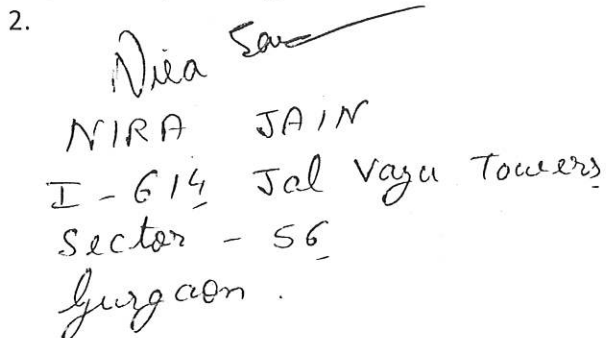 2.
Nira
NIRA JAIN
I - 614 Jal Vayu Towers
Sector - 56
Gurgaon .